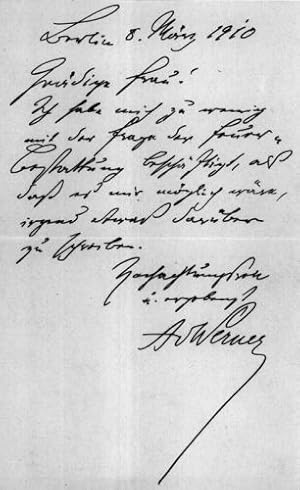 Berlin 8. März 1910
Gnädige Frau!
Ich habe mich zu wenig
mit der Frage der Feuer-
bestattung beschäftigt, als
daß es mir möglich wäre,
irgend etwas darüber
zu schreiben.
Hochachtungsvoll
u. ergebenst
AvWerner